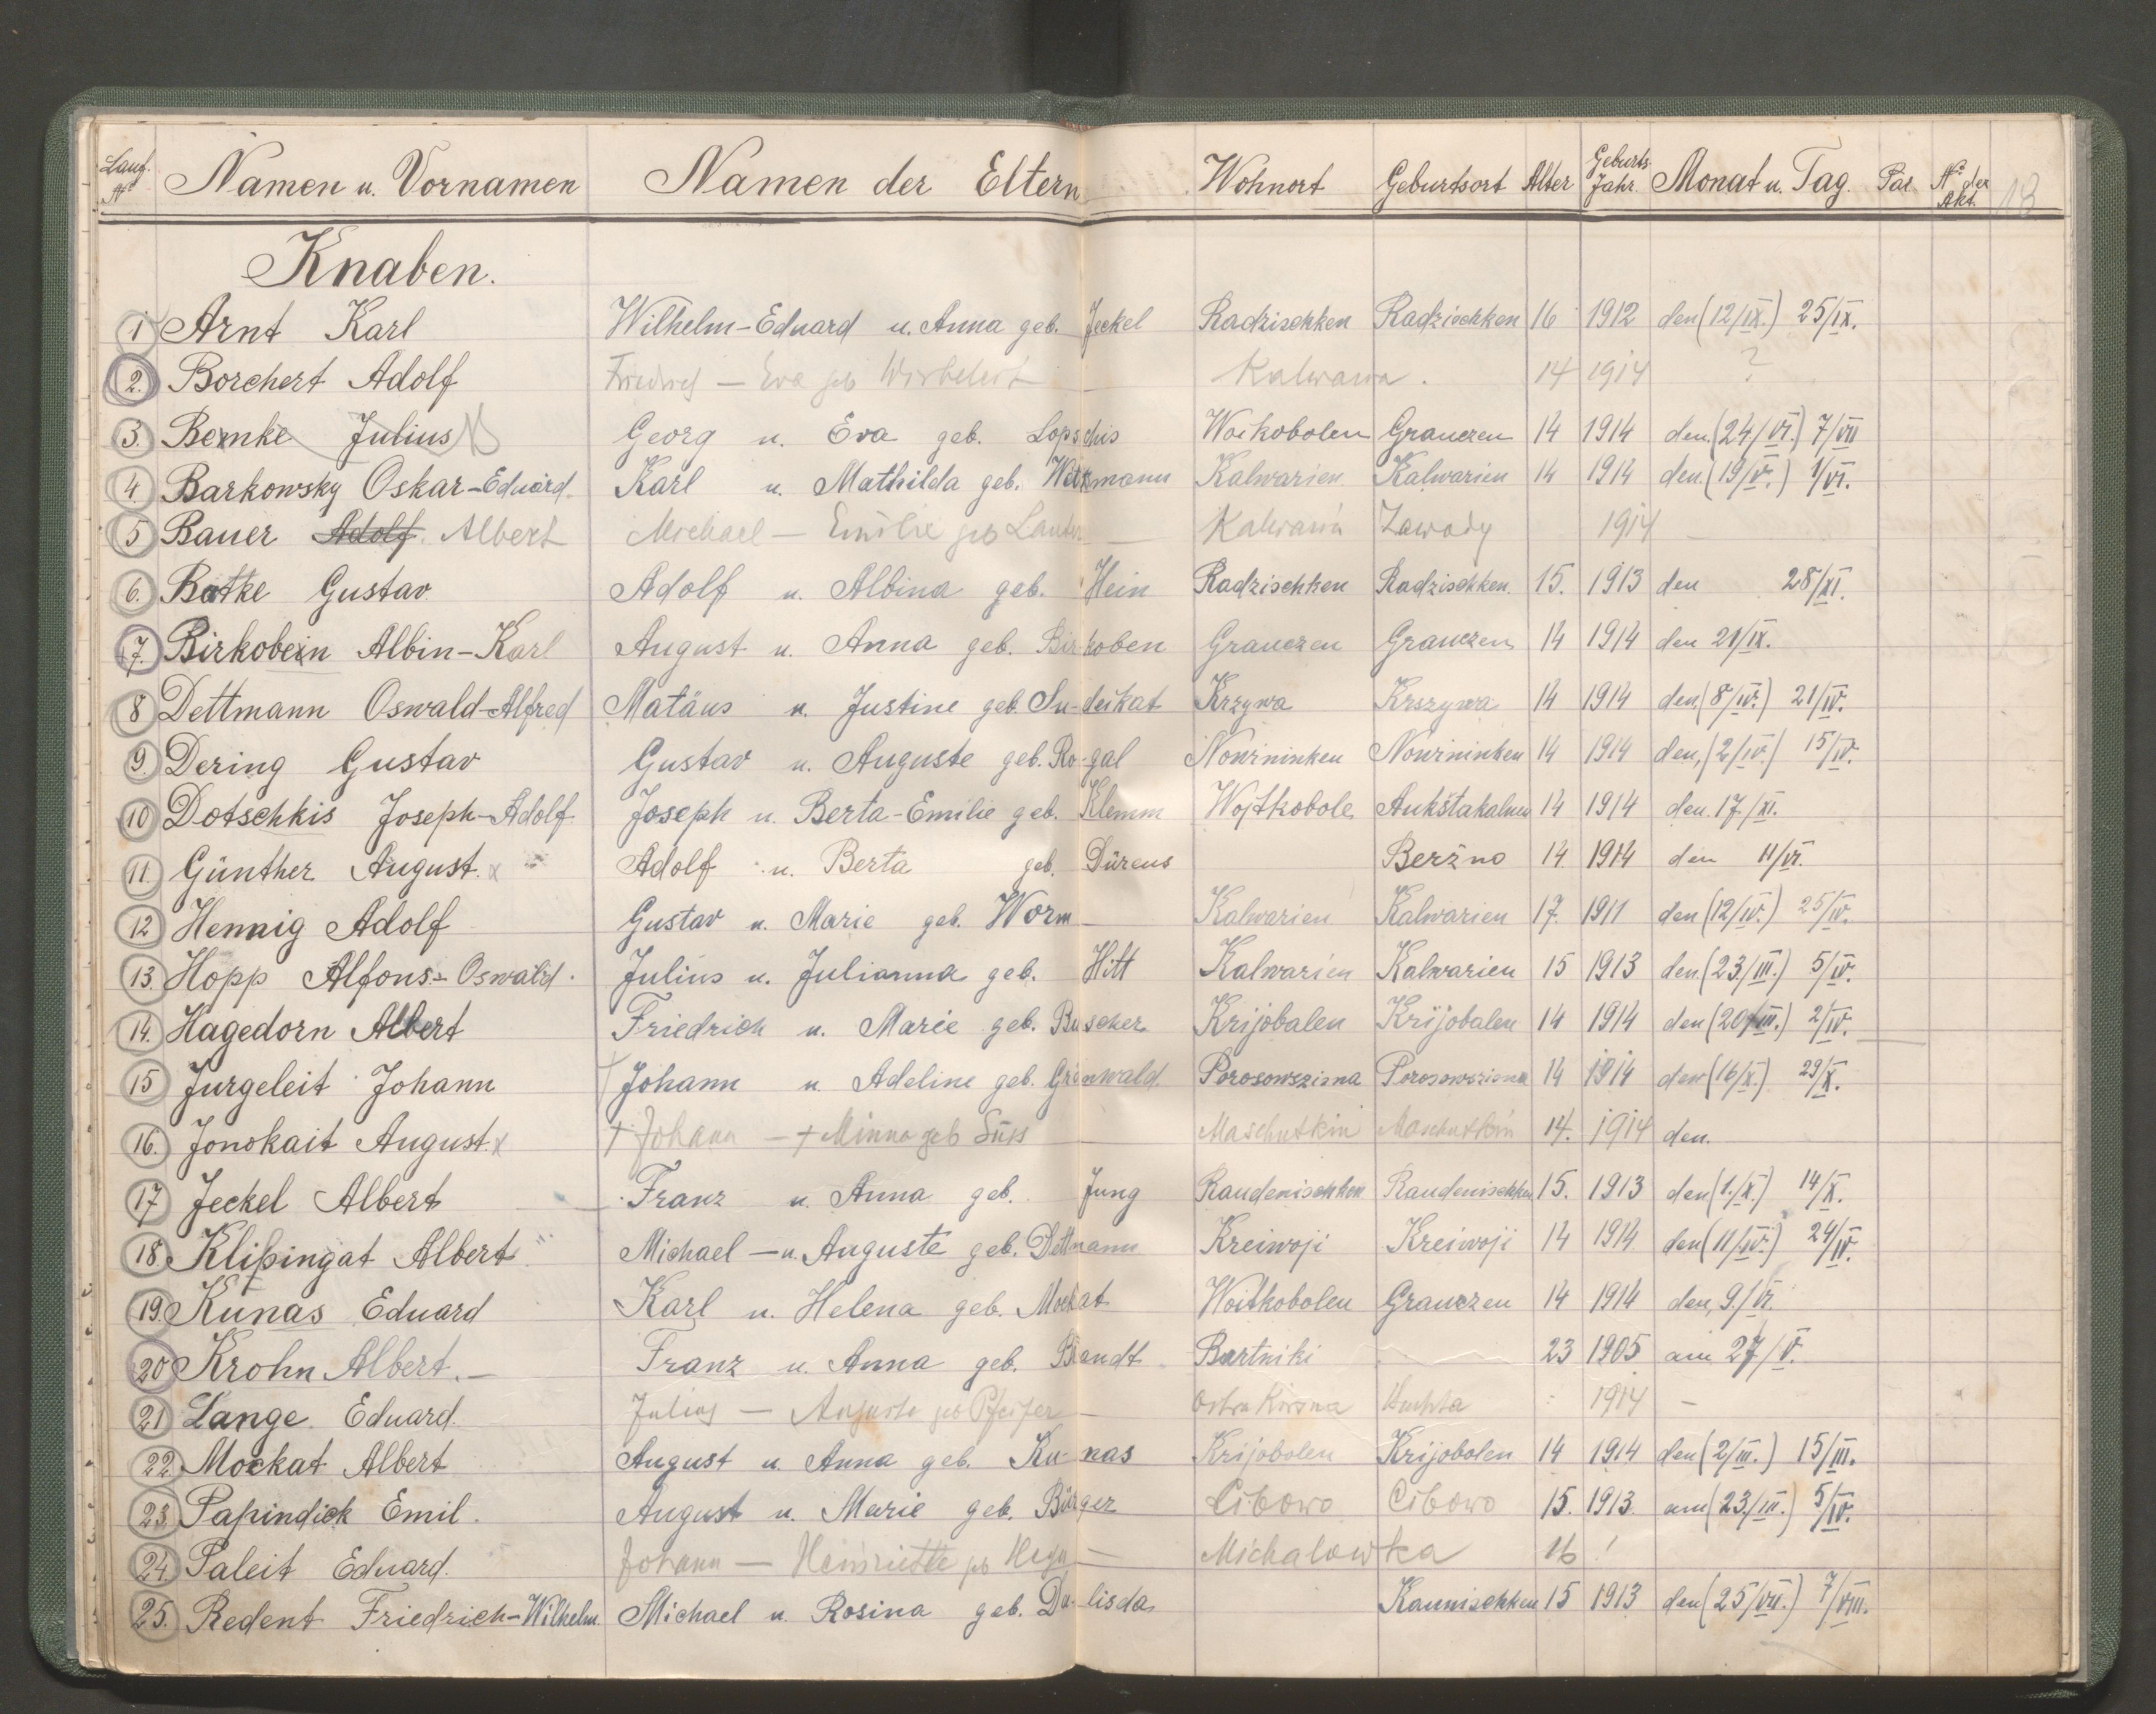 Lauf. № Namen u. Vornamen Namen der Eltern Wohnort Geburtsort Alter Geburts-Jahr. Monat u. Tag. Par. № der Akt. 13
Knaben.
1 Arnt Karl Wilhelm-Eduard u. Anna geb. Jeckel Radzischken Radzischken 16 1912 den (12/IX.) 25/IX.
2. Borchert Adolf Friedrich — Eva geb Kalwaria. 14 1914 ?
3. Bemke Julius Georg u. Eva geb. Lopschis Woikobolen Grauczen 14 1914 den (24/VI.) 7/VII
4. Barkowsky Oskar-Eduard. Karl u. Mathilda geb. Witzmann Kalwarien Kalwarien 14 1914 den (19/V.) 1/VI.
5 Bauer Adolf. Albert Michael — Emilie geb Lauter — Kalwaria Zawody 1914 —
6. Batke Gustav Adolf u. Albina geb. Hein Radzischken Radzischken. 15. 1913 den 28/XI.
7. Birkobein Albin-Karl August u. Anna geb. Birkoben Grauczen Grauczen 14 1914 den 21/IX.
8 Dettmann Oswald-Alfred Matäus u. Justine geb. Su-deikat Krzywa Krszywa 14 1914 den (8/IV.) 21/IV.
9. Dering Gustav Gustav u. Auguste geb. Ro-gal Nowininken Nowininken 14 1914 den, (2/IV.) 15/IV.
10 Dotschkis Joseph-Adolf. Joseph u. Berta-Emilie geb. Klemm Wojtkobole Aukštakalnen 14 1914 den 17/XI.
11. Günther August. x Adolf u. Berta geb. Dürcus Beržno 14 1914 den 11/VI.
12 Hennig Adolf Gustav u. Marie geb. Worm — Kalwarien Kalwarien 17. 1911 den (12/IV.) 25/IV.
13. Hopp Alfons-Oswald. Julius u. Julianna geb. Hitt Kalwarien Kalwarien 15 1913 den (23/III.) 5/IV.
14. Hagedorn Albert Friedrich u. Marie geb. Buscher Krijobalen Krijobalen 14 1914 den (20/III.) 2/IV.
15 Jurgeleit Johann Johann u. Adeline geb. Grünwald. Porosowszisna Porosowszisna 14 1914 den (16/X.) 29/X.
16. Jonokait August. x † Johann — † Minna geb Süss Maschutkin Maschutkin 14. 1914 den.
17 Jeckel Albert Franz u. Anna geb. Jung Raudenischken Raudenischken 15. 1913 den (1./X.) 14/X.
18. Klißingat Albert Michael — u. Auguste geb. Dettmann Kreiwoji Kreiwoji 14 1914 den (11/IV.) 24/IV.
19. Kunas Eduard Karl u. Helena geb. Mockat Woitkobolen Grauczen 14 1914 den, 9./VI.
20 Krohn Albert. — Franz u. Anna geb. Brandt Bartniki 23 1905 am 27/V.
21 Lange. Eduard. Julius — Auguste geb Pfeifer — Ostra Kirsna Huchta 1914 —
22. Mockat Albert August u. Anna geb. Ku-nas Krijobolen Krijobolen 14 1914 den (2/III.) 15/III.
23. Paßindick Emil. August u. Marie geb. Bürger Cibowo Cibowo 15. 1913. am (23./III.) 5/IV.
24. Paleit Eduard. Johann — Henriette geb — Michalowka 16 !
25. Redent Friedrich-Wilhelm. Michael u. Rosina geb. Du-lisda Kaunischken 15 1913 den (25/VII.) 7/VIII.